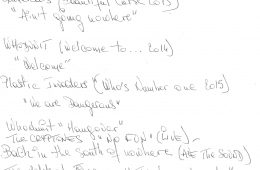 (Beautiful Curse 2013)
"Ain't going nowhere"
Whodunit (Welcome to... 2014)
"Welcome"
Plastic Invaders (Who's Number one 2015)
"We are Dangerous"
Whodunit "Hangover"
The "NO FUN" (LIVE)
Back in the south of nowhere (ARE The SOUND)